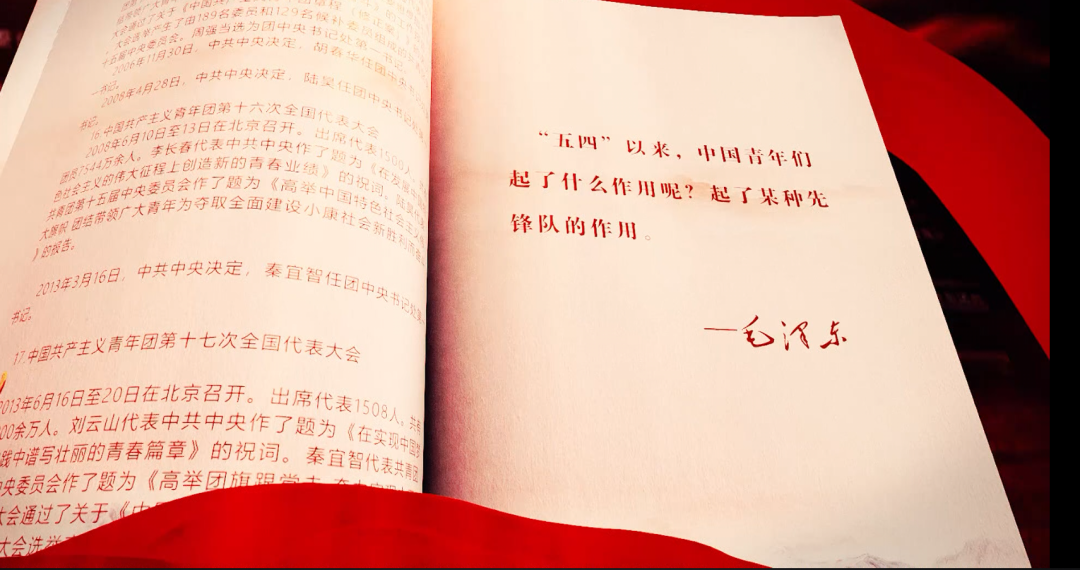 大会选举产生了由189名委员和129名候补委员组成的
十五届中央委员会。周强当选为团中央书记处第一书记。
2006年11月30日，中共中央决定，胡春华任团中央书
一书记。
2008年4月28日，中共中央决定，陆昊任团中央书记处
书记。
16.中国共产主义青年团第十六次全国代表大会
2008年6月10日至13日在北京召开。出席代表1500人，
团员7544万余人。李长春代表中共中央作了题为《在发展中
色社会主义的伟大征程上创造新的青春业绩》的祝词。陆昊代
共青团第十五届中央委员会作了题为《高举中国特色社会主义
大旗帜 团结带领广大青年为夺取全面建设小康社会新胜利而
》的报告。
2013年3月16日，中共中央决定，秦宜智任团中央书记处第
书记。
17.中国共产主义青年团第十七次全国代表大会
2013年6月16日至20日在北京召开。出席代表1508人，共有
00余万人。刘云山代表中共中央作了题为《在实现中国梦
践中谱写壮丽的青春篇章》的祝词。秦宜智代表共青团
中央委员会作了题为《高举团旗跟党走
大会通过了关于《中
大会选举
“五四”以来，中国青年们
起了什么作用呢？起了某种先
锋队的作用。
—毛泽东